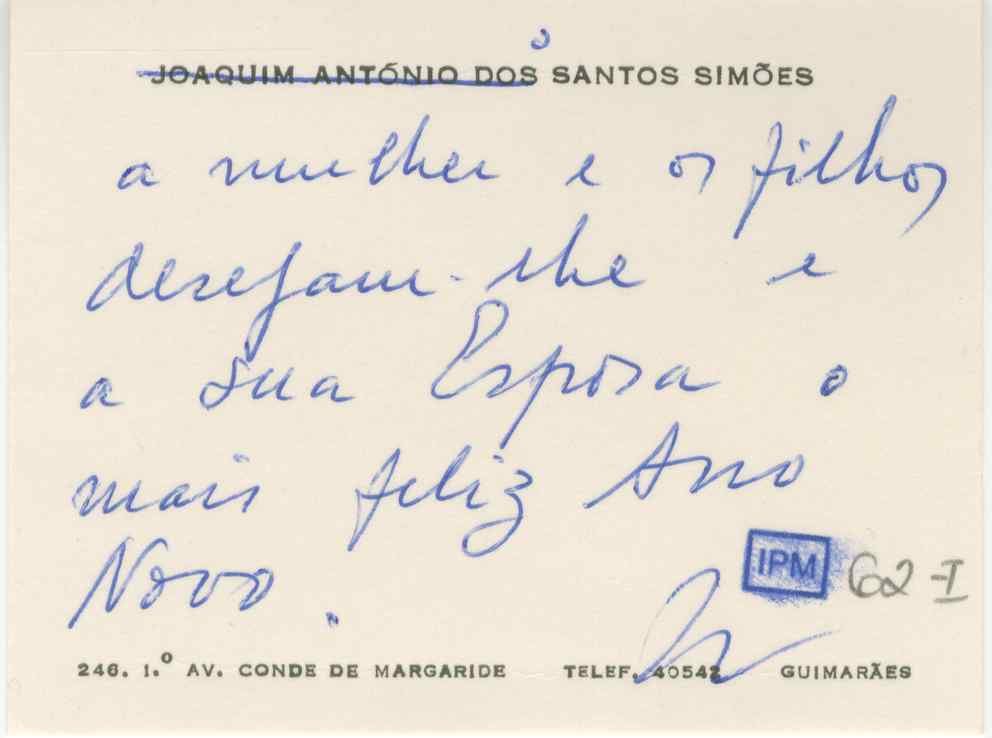 o
JOAQUIM ANTÓNIO DOS SANTOS SIMÕES
a mulher e os filhos
desejam-lhe e
a sua Esposa o
mais feliz Ano
Novo.
IPM 62-I
246. 1.º AV. CONDE DE MARGARIDE TELEF. 40542 GUIMARÃES